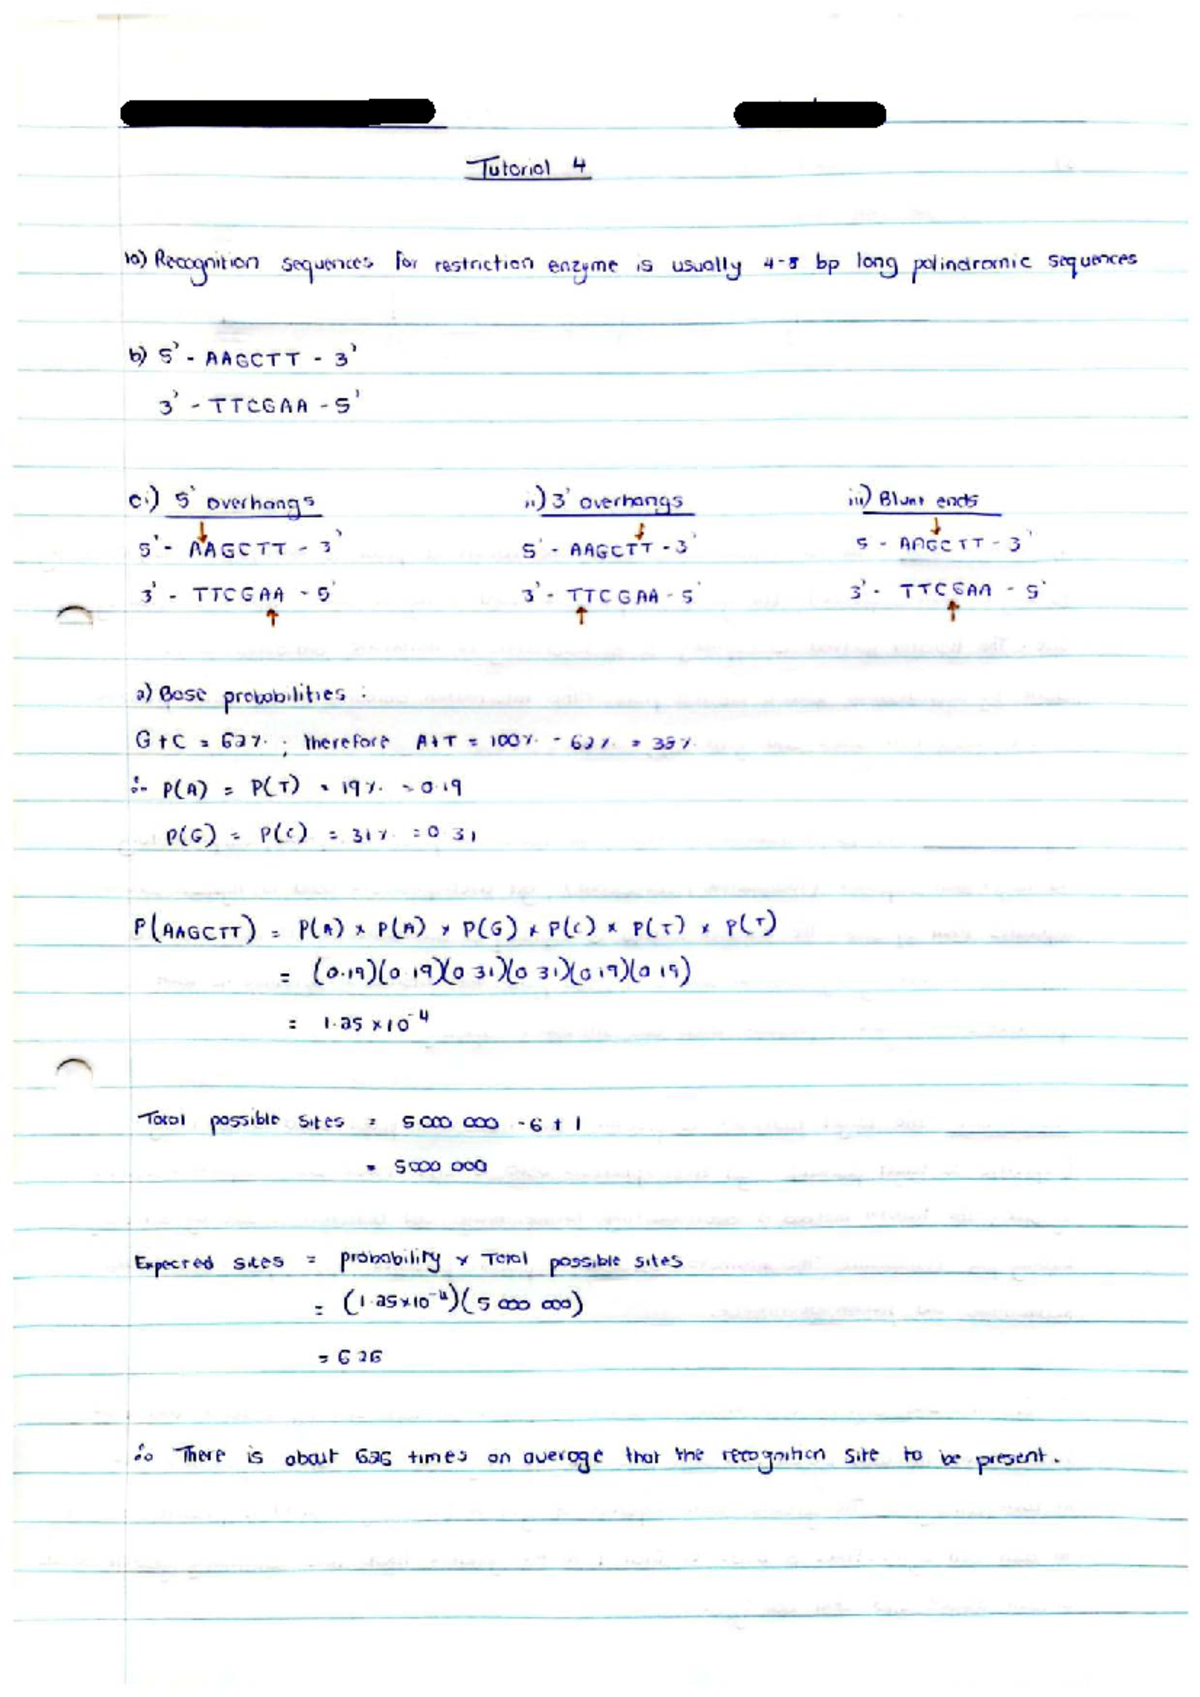 Tutorial 4
1a) Recognition sequences for restriction enzyme is usually 4-8 bp long palindromic sequences
b) 5' - AAGCTT - 3'
3' - TTCGAA - 5'
ci) 5' overhangs ii) 3' overhangs iii) Blunt ends
5' - AAGCTT - 3' 5' - AAGCTT - 3' 5 - AAGCTT - 3'
3' - TTCGAA - 5' 3' - TTCGAA - 5' 3' - TTCGAA - 5'
a) Base probabilities :
G+C = 62% ; therefore A+T = 100% - 62% = 38%
∴ P(A) = P(T) = 19% = 0.19
P(G) = P(C) = 31% = 0.31
P(AAGCTT) = P(A) × P(A) × P(G) × P(C) × P(T) × P(T)
= (0.19)(0.19)(0.31)(0.31)(0.19)(0.19)
= 1.25 × 10⁻⁴
Total possible sites = 5000 000 - 6 + 1
= 5000 000
Expected sites = probability × Total possible sites
= (1.25×10⁻⁴)(5 000 000)
= 626
∴ There is about 626 times on average that the recognition site to be present.